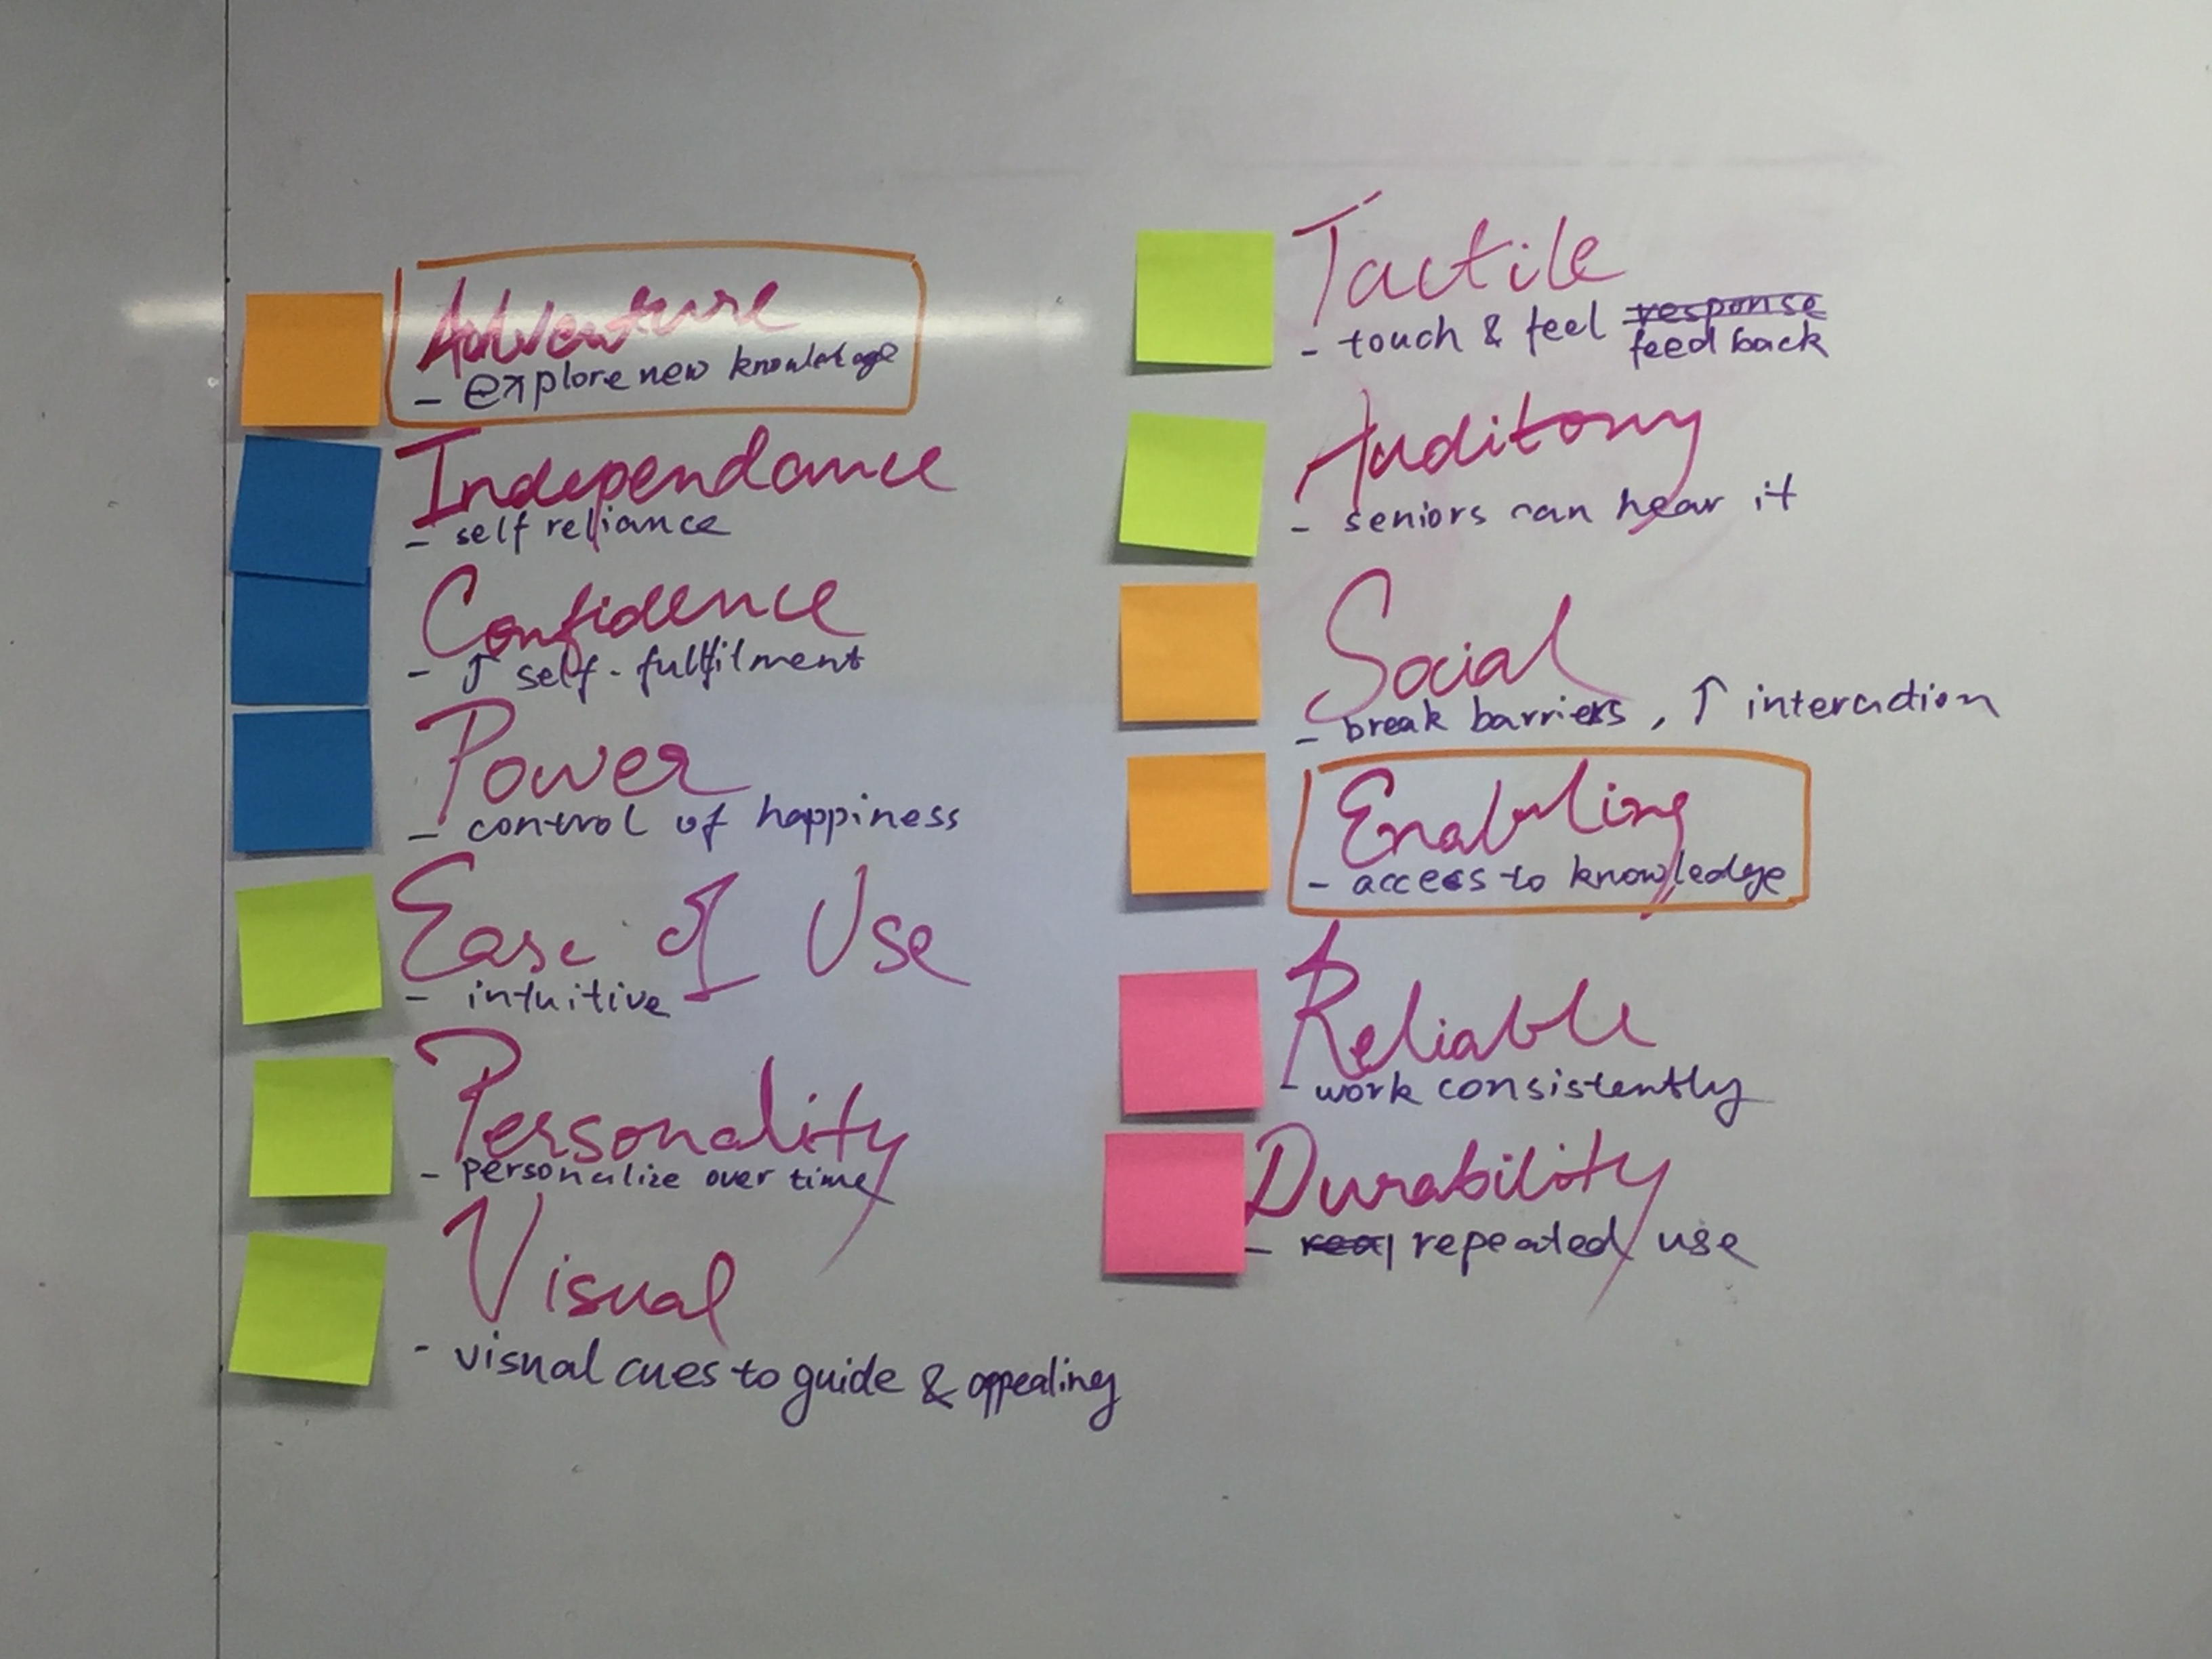 Adventure
- explore new knowledge
Independance
- self reliance
Confidence
- ↑ self-fulfilment
Power
- control of happiness
Ease of Use
- intuitive
Personality
- personalize over time
Visual
- visual cues to guide & appealing
Tactile
- touch & feel response
feedback
Auditory
- seniors can hear it
Social
- break barriers, ↑ interaction
Enabling
- access to knowledge
Reliable
- work consistently
Durability
- repeated use